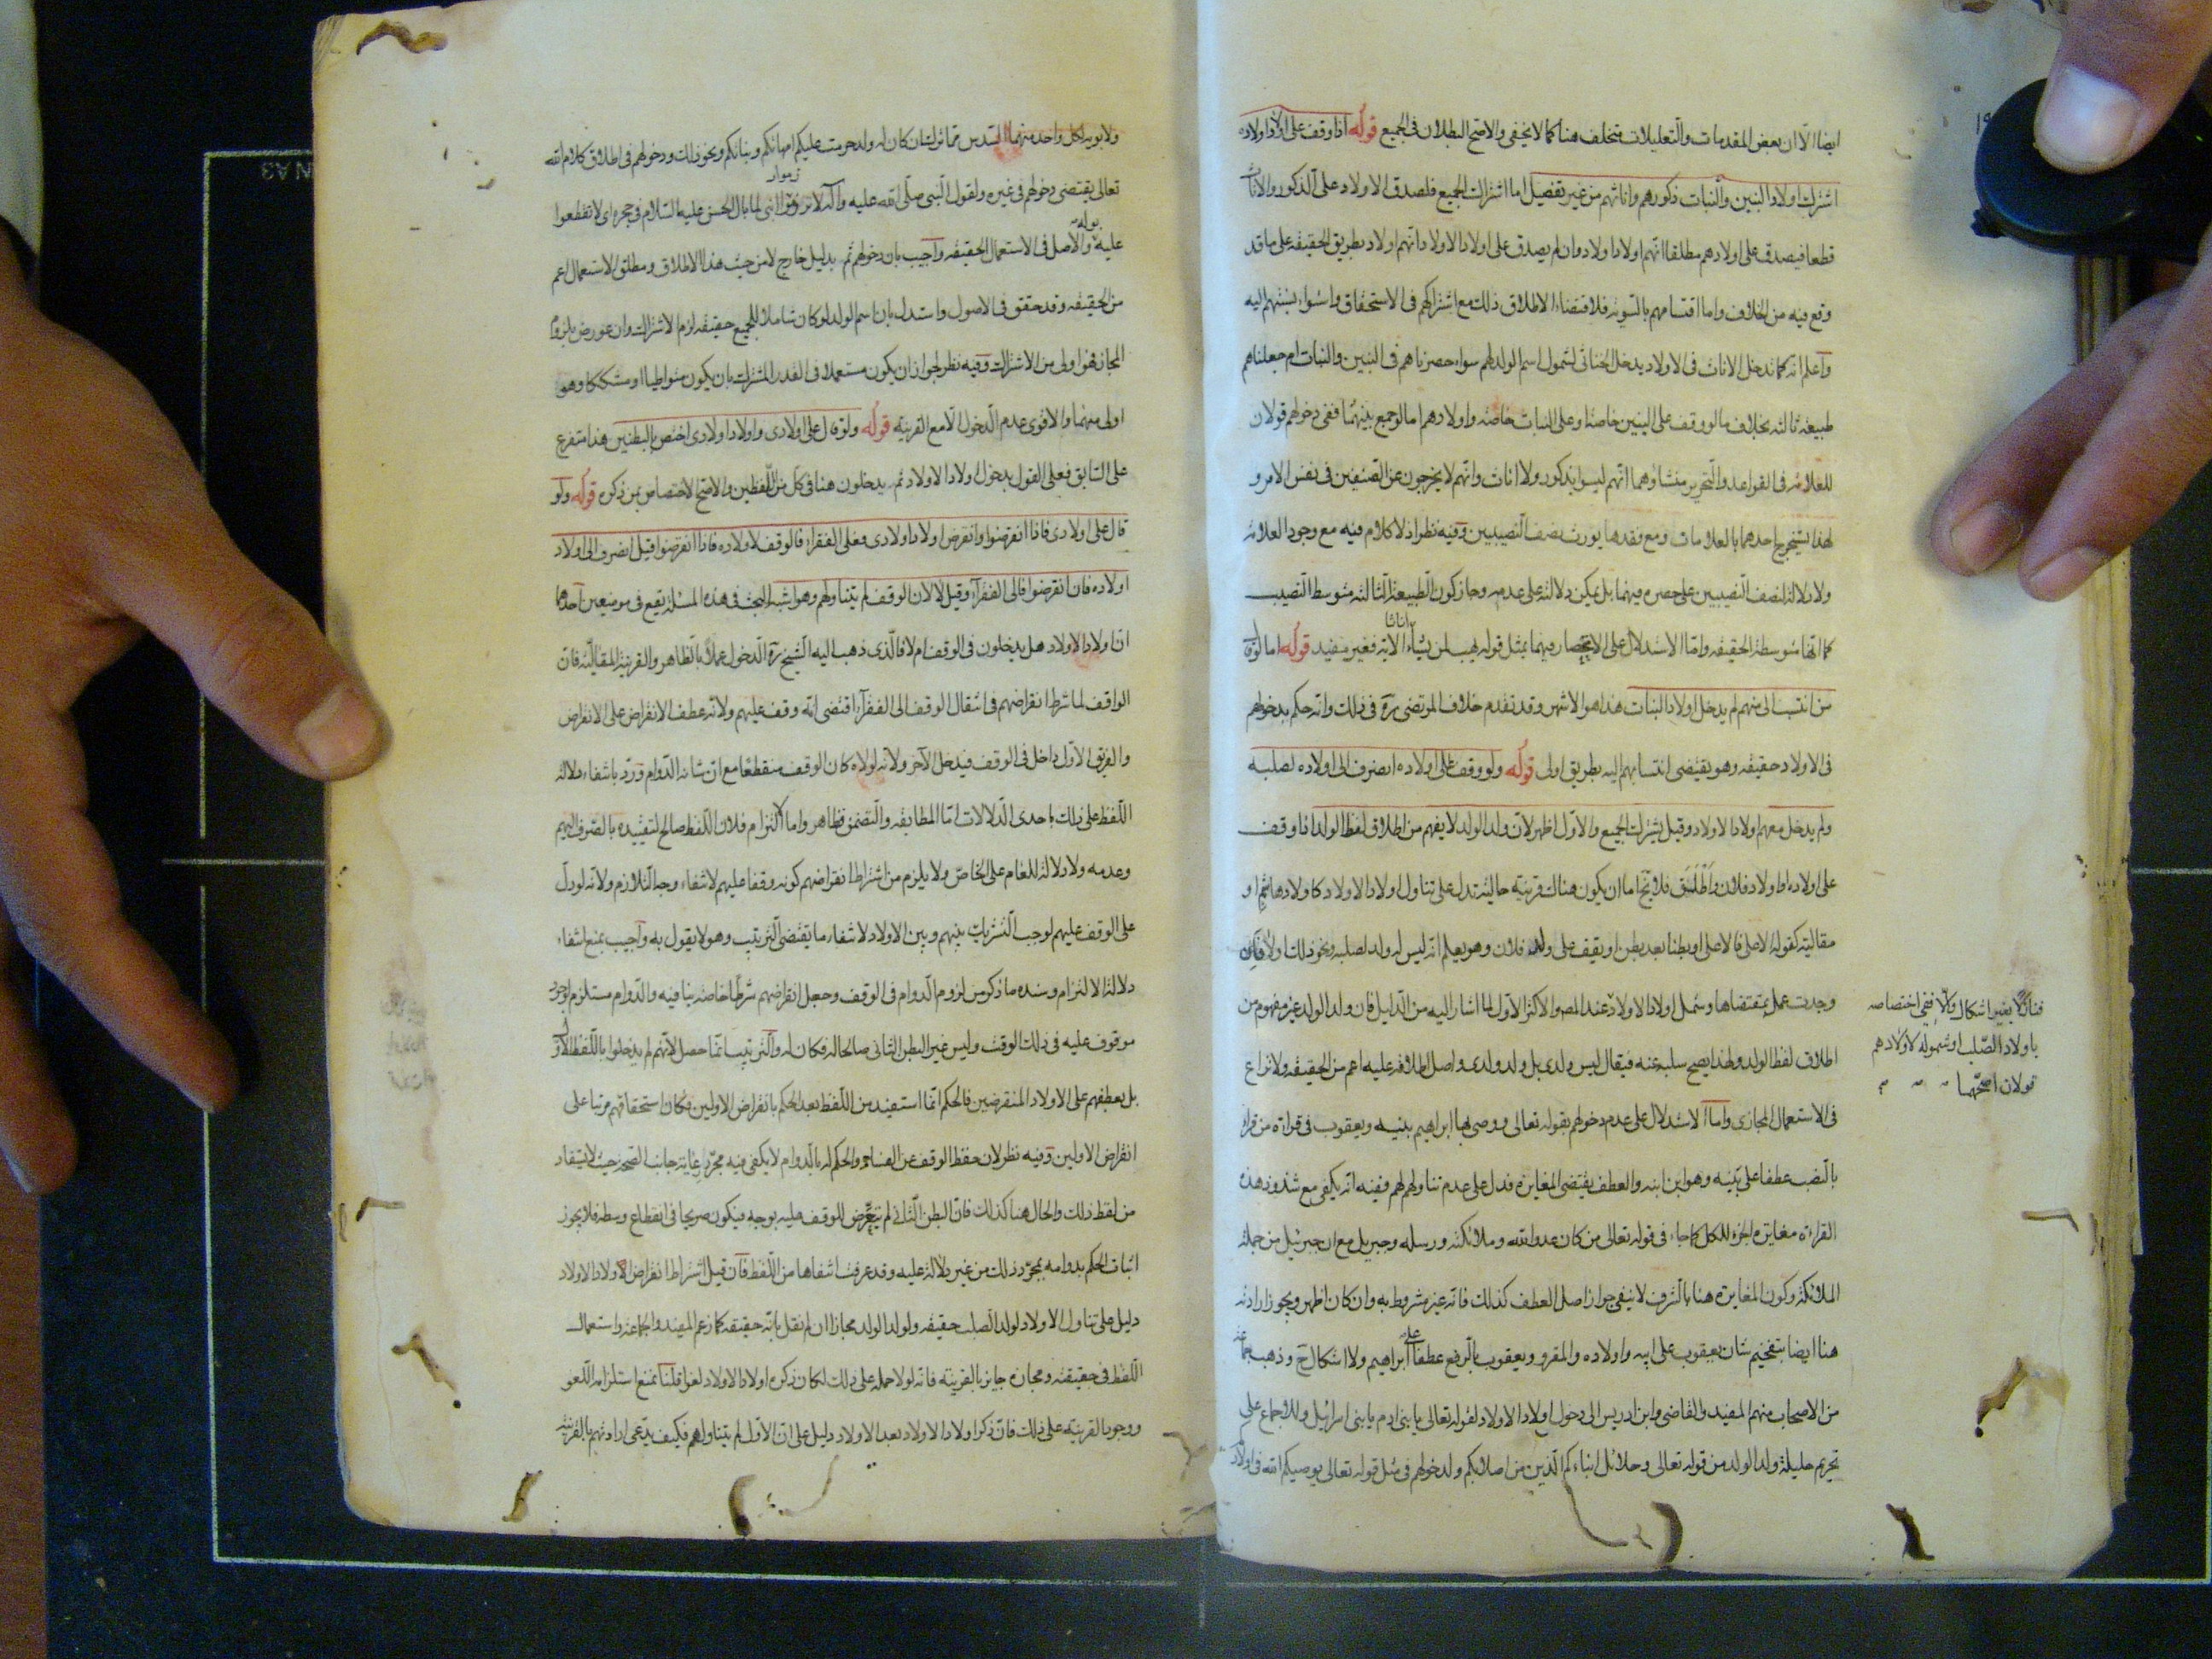 ايضا الّا ان بعض المقدمات والتعليلات متخلف هنا كما لا يخفى والاصح البطلان فى الجميع قوله اذا وقف على اولاد اولاده
اشترك اولاد البنين والبنات ذكورهم واناثهم من غير تفضيل اما اشتراك الجميع فلصدق الاولاد على الذكور والاناث
قطعا فيصدق على اولادهم مطلقا انهم اولاد اولاد وان لم يصدق على اولاد الاولاد انهم اولاد بطريق الحقيقه على ما قد
وقع فيه من الخلاف واما اقتسامهم بالسويه فلاقتضاء الاطلاق ذلك مع اشتراكهم فى الاستحقاق واستواء نسبتهم اليه
واعلم انه كما تدخل الاناث فى الاولاد يدخل الخناثى لشمول اسم الولد لهم سواء حصرناهم فى البنين والبنات ام جعلناهم
طبيعة ثالثه بخلاف ما لو وقف على البنين خاصة او على البنات خاصه او اولادهم اما لو جمع بينهما ففى دخولهم قولان
للعلامه فى القواعد والتحرير منشاوهما انهم ليسوا بذكور ولا اناث وانهم لا يخرجون عن الصنفين فى نفس الامر و
لهذا يستخرج احدهما بالعلامات ومع فقدها يورث نصف النصيبين وفيه نظر اذ لا كلام فيه مع وجود العلامه
ولا دلاله لنصف النصيبين على حصره فيهما بل يمكن دلالته على عدمه وجاز كون الطبيعة الثالثه متوسط النصيب
كما انها متوسطة الحقيقه واما الاستدلال على الانحصار فيهما بمثل قوله يهب لمن يشاء اناثا الايه فغير مفيد قوله اما لو قال
من انتسب الى منهم لم يدخل اولاد البنات هذا هو الاشهر وقد تقدم خلاف المرتضى ره فى ذلك وانه حكم بدخولهم
فى الاولاد حقيقه وهو يقتضى انتسابهم اليه بطريق اولى قوله ولو وقف على اولاده انصرف الى اولاده لصلبه
ولم يدخل معهم اولاد الاولاد وقيل يشترك الجميع والاول اظهر لان ولد الولد لا يفهم من اطلاق لفظ الولد اذا وقف
على اولاده او اولاد فلان واطلق فلا يخ اما ان يكون هناك قرينة حاليه تدل على تناول اولاد الاولاد كاولاد هاشم او
مقاليه كقوله الاعلى فالاعلى او بطنا بعد بطن او يقف على ولد فلان وهو يعلم انه ليس له ولد لصلبه ونحو ذلك اولا فان
وجدت عمل بمقتضاها وشمل اولاد الاولاد عند المص والاكثر الاول لما اشار اليه من الدليل فان ولد الولد غير مفهوم من
اطلاق لفظ الولد ولهذا يصح سلبه عنه فيقال ليس ولدى بل ولد ولدى واصل اطلاقه عليه اعم من الحقيقه ولا نزاع
فى الاستعمال المجازى واما الاستدلال على عدم دخولهم بقوله تعالى ووصى بها ابراهيم بنيه ويعقوب فى قراءة من قرا
بالنصب عطفا على بنيه وهو ابن ابنه والعطف يقتضى المغايره فدل على عدم تناولهم لهم ففيه انه يكفى مع شذوذ هذه
القراءة مغايرة الجزء للكل كما جاء فى قوله تعالى من كان عدوا لله وملائكته ورسله وجبريل مع ان جبرئيل من جملة
الملائكة وكون المغايره هنا بالشرف لا ينفى جواز اصل العطف كذلك فانه غير مشروط به وان كان اظهر ويجوز ارادته
هنا ايضا بتفخيم شان يعقوب على ابيه واولاده والمقرو ويعقوب بالرفع عطفا على ابراهيم ولا اشكال ح وذهب جماعة
من الاصحاب منهم المفيد والقاضى وابن ادريس الى دخول اولاد الاولاد لقوله تعالى يا بنى ادم يا بنى اسرائيل وللاجماع على
تحريم حليلة ولد الولد من قوله تعالى وحلائل ابنائكم الذين من اصلابكم ولدخولهم فى مثل قوله تعالى يوصيكم الله فى اولادكم
باولاد الصلب او شموله لاولادهم
قولان اصحهما
ولابويه لكل واحد منهما السدس مما ترك ان كان له ولد حرمت عليكم امهاتكم وبناتكم ونحو ذلك ودخولهم فى اطلاق كلام الله
تعالى يقتضى دخولهم فى غيره ولقول النبى صلى الله عليه وآله لا تزرموا ابنى لما بال الحسن عليه السلام فى حجره اى لا تقطعوا
عليه بوله والاصل فى الاستعمال الحقيقه واجيب بان دخولهم ثم بدليل خارج لا من حيث هذا الاطلاق ومطلق الاستعمال اعم
من الحقيقه وقد حقق فى الاصول واستدل بان اسم الولد لو كان شاملا للجميع حقيقه لزم الاشتراك وان عورض بلزوم
المجاز فهو اولى من الاشتراك وفيه نظر لجواز ان يكون مستعملا فى القدر المشترك بان يكون متواطيا او مشككا وهو
اولى منهما والاقوى عدم الدخول الا مع القرينه قوله ولو قال على اولادى واولاد اولادى اختص بالبطنين هذا متفرع
على السابق فعلى القول بدخول اولاد الاولاد ثم يدخلون هنا فى كل من اللفظين والاصح الاختصاص بمن ذكره قوله ولو
قال على اولادى فاذا انقرضوا وانقرض اولاد اولادى فعلى الفقراء فالوقف لاولاده فاذا انقرضوا قيل انصرف الى اولاد
اولاده فان انقرضوا فالى الفقراء وقيل لا لان الوقف لم يتناولهم وهو اشبه البحث فى هذه المسئلة يقع فى موضعين احدهما
ان اولاد الاولاد هل يدخلون فى الوقف ام لا فالذى ذهب اليه الشيخ ره الدخول عملا بالظاهر والقرينة المقاليه فان
الواقف لما شرط انقراضهم فى انتقال الوقف الى الفقراء اقتضى انه وقف عليهم ولانه عطف الانقراض على الانقراض
والفريق الاول داخل فى الوقف فيدخل الآخر ولانه لولاه كان الوقف منقطعا مع ان شانه الدوام ورد بانتفاء دلالة
اللفظ على ذلك باحدى الدلالات اما المطابقه والتضمن فظاهر واما الالتزام فلان اللفظ صالح لتقييده بالصرف اليهم
وعدمه ولا دلالة للعام على الخاص ولا يلزم من اشتراط انقراضهم كونه وقفا عليهم لانتفاء وجه التلازم ولانه لو دل
على الوقف عليهم لوجب التشريك بينهم وبين الاولاد لانتفاء ما يقتضى الترتيب وهو لا يقول به واجيب بمنع انتفاء
دلالة الالتزام وسنده ما ذكر من لزوم الدوام فى الوقف وجعل انقراضهم شرطا خاصه ينافيه والدوام مستلزم لوجود
موقوف عليه فى ذلك الوقت وليس غير البطن الثانى صالحا له فكان له والترتيب انما حصل لانهم لم يدخلوا باللفظ الاول
بل بعطفهم على الاولاد المنقرضين فالحكم انما استفيد من اللفظ بعد الحكم بانقراض الاولين فكان استحقاقهم مرتبا على
انقراض الاولين وفيه نظر لان حفظ الوقف عن الفساد والحكم له بالدوام لا يكفى فيه مجرد رعاية جانب الصحه حيث لا يستفاد
من لفظ ذلك والحال هنا كذلك فان البطن الثانى لم يتعرض للوقف عليه بوجه فيكون صريحا فى انقطاع وسطه فلا يجوز
اثبات الحكم بدوامه بمجرد ذلك من غير دلالة عليه وقد عرفت انتفاها من اللفظ فان قيل اشتراط انقراض اولاد الاولاد
دليل على تناول الاولاد لولد الصلب حقيقه ولولد الولد مجازا ان لم نقل بانه حقيقه كما زعم المفيد والجماعه واستعمال
اللفظ فى حقيقته ومجازه جايز بالقرينه فانه لولا حمله على ذلك لكان ذكره اولاد الاولاد لغوا قلنا نمنع استلزامه اللغو
ووجود القرينه على ذلك فان ذكر اولاد الاولاد بعد الاولاد دليل على ان الاول لم يتناولهم فكيف يدعى ارادتهم بالقرينه